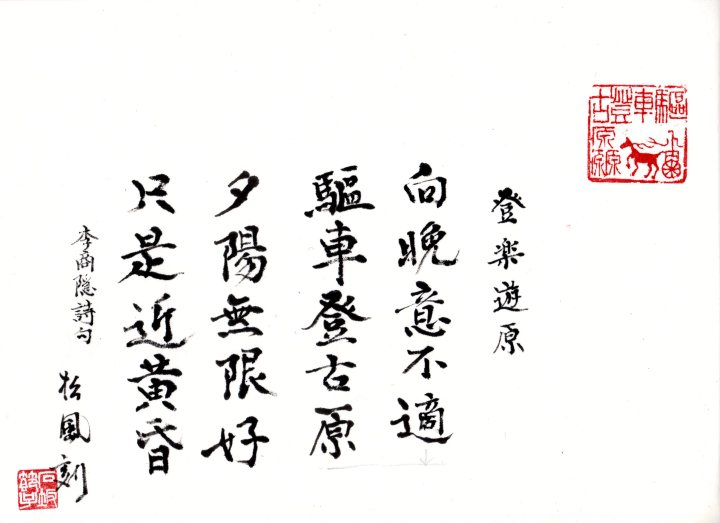 登楽遊原
向晩意不適
驅車登古原
夕陽無限好
只是近黄昏
李商隠詩句
松風刻
驅車登古原